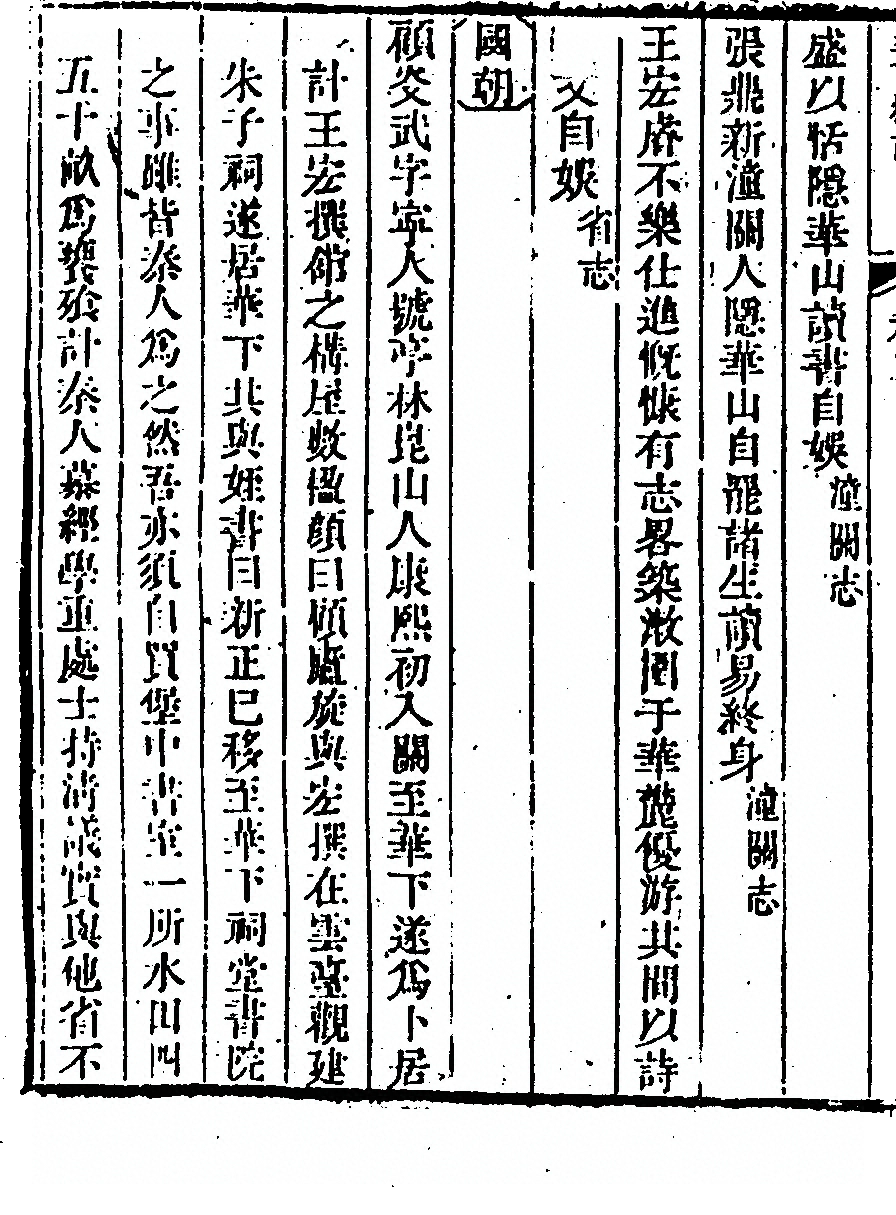 盛以恬隱華山讀書自娛潼關志
張鼎新潼關人隱華山自罷諸生讀易終身潼關志
王宏𢈪不樂仕進慨慷有志畧築漱園于華麓優游其間以詩
文自娛省志
國朝
顧炎武字寧人號亭林崑山人康熙初入關至華下遂爲卜居
計王宏撰館之構屋數楹顏曰顧廬旋與宏撰在雲臺觀建
朱子祠遂居華下其與姪書曰新正已移至華下祠堂書院
之事雖皆秦人爲之然吾亦須自買堡中書室一所水田四
五十畝爲饔飧計秦人慕經學重處士持清議實與他省不